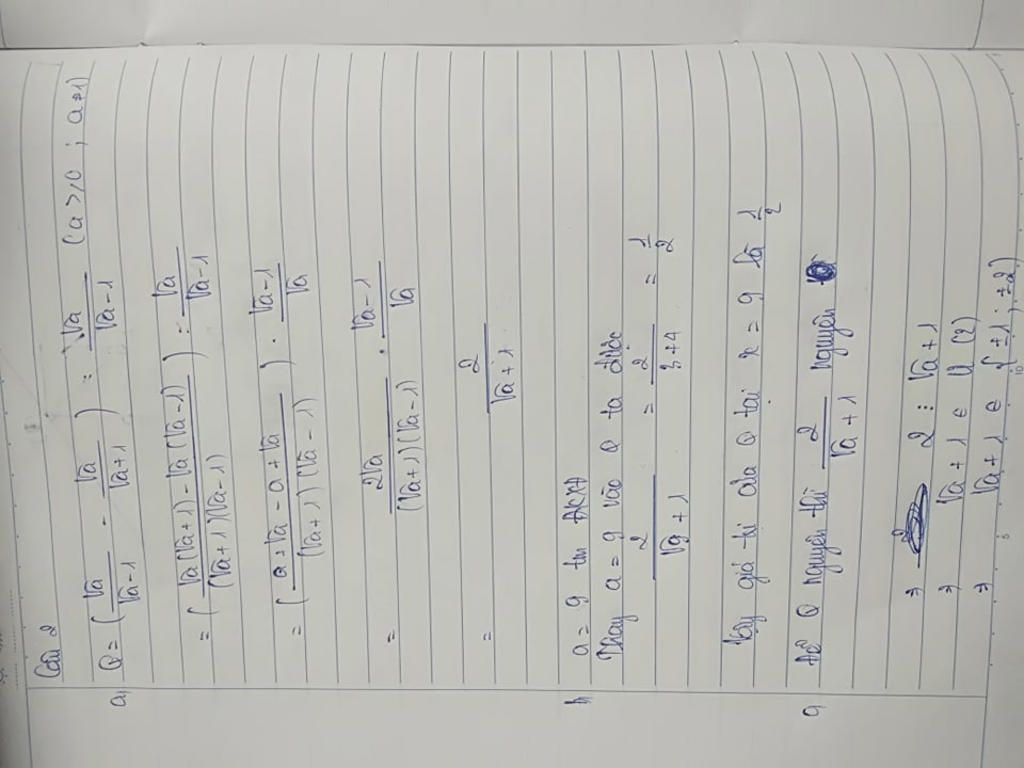 Câu 2
a, Q = ( √a/(√a-1) - √a/(√a+1) ) : √a/(√a-1) (a>0 ; a≠1)
= ( (√a(√a+1) - √a(√a-1))/((√a+1)(√a-1)) ) : √a/(√a-1)
= ( (a+√a - a+√a)/((√a+1)(√a-1)) ) . (√a-1)/√a
= 2√a/((√a+1)(√a-1)) . (√a-1)/√a
= 2/(√a+1)
b, a = 9 tm ĐKXĐ
Thay a = 9 vào Q ta được
2/(√9+1) = 2/(3+1) = 1/2
Vậy giá trị của Q tại x = 9 là 1/2
c, Để Q nguyên thì 2/(√a+1) nguyên
⇒ 2 ⋮ √a+1
⇒ √a+1 ∈ Ư(2)
⇒ √a+1 ∈ {±1; ±2}